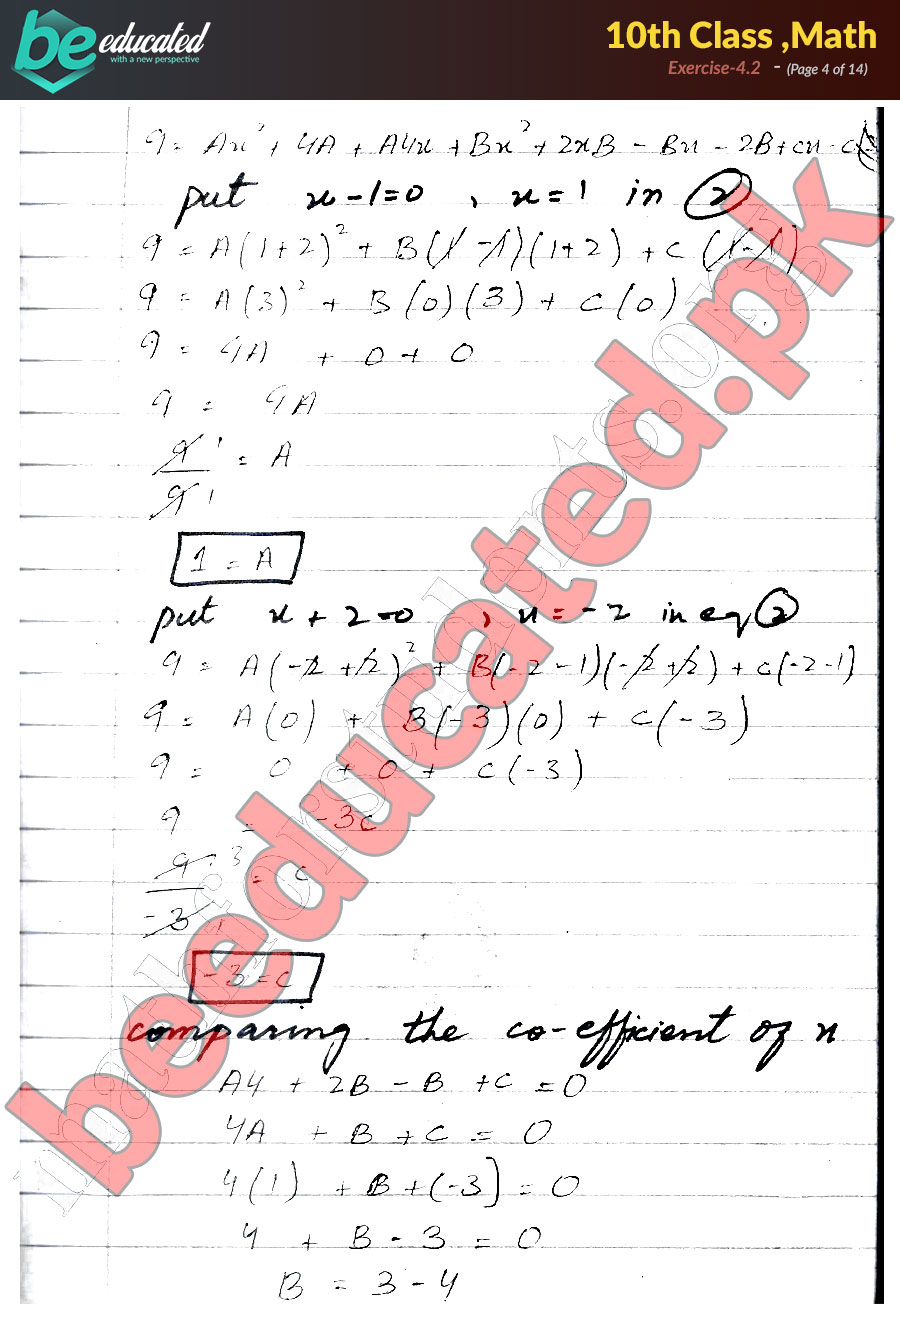 be educated
with a new perspective
10th Class ,Math
Exercise-4.2 - (Page 4 of 14)
9 = Ax² + 4A + A4x + Bx² + 2xB - Bx - 2B + cx - c
put x-1=0 , x=1 in ②
9 = A(1+2)² + B(1-1)(1+2) + C(1-1)
9 = A(3)² + B(0)(3) + C(0)
9 = 9A + 0 + 0
9 = 9A
9/9 = A
1 = A
put x+2=0 , x=-2 in eq ②
9 = A(-2+2)² + B(-2-1)(-2+2) + C(-2-1)
9 = A(0) + B(-3)(0) + C(-3)
9 = 0 + 0 + C(-3)
9 = -3C
9/-3 = C
-3 = C
comparing the co-efficient of x
A4 + 2B - B + C = 0
4A + B + C = 0
4(1) + B + (-3) = 0
4 + B - 3 = 0
B = 3 - 4
beeducated.pk